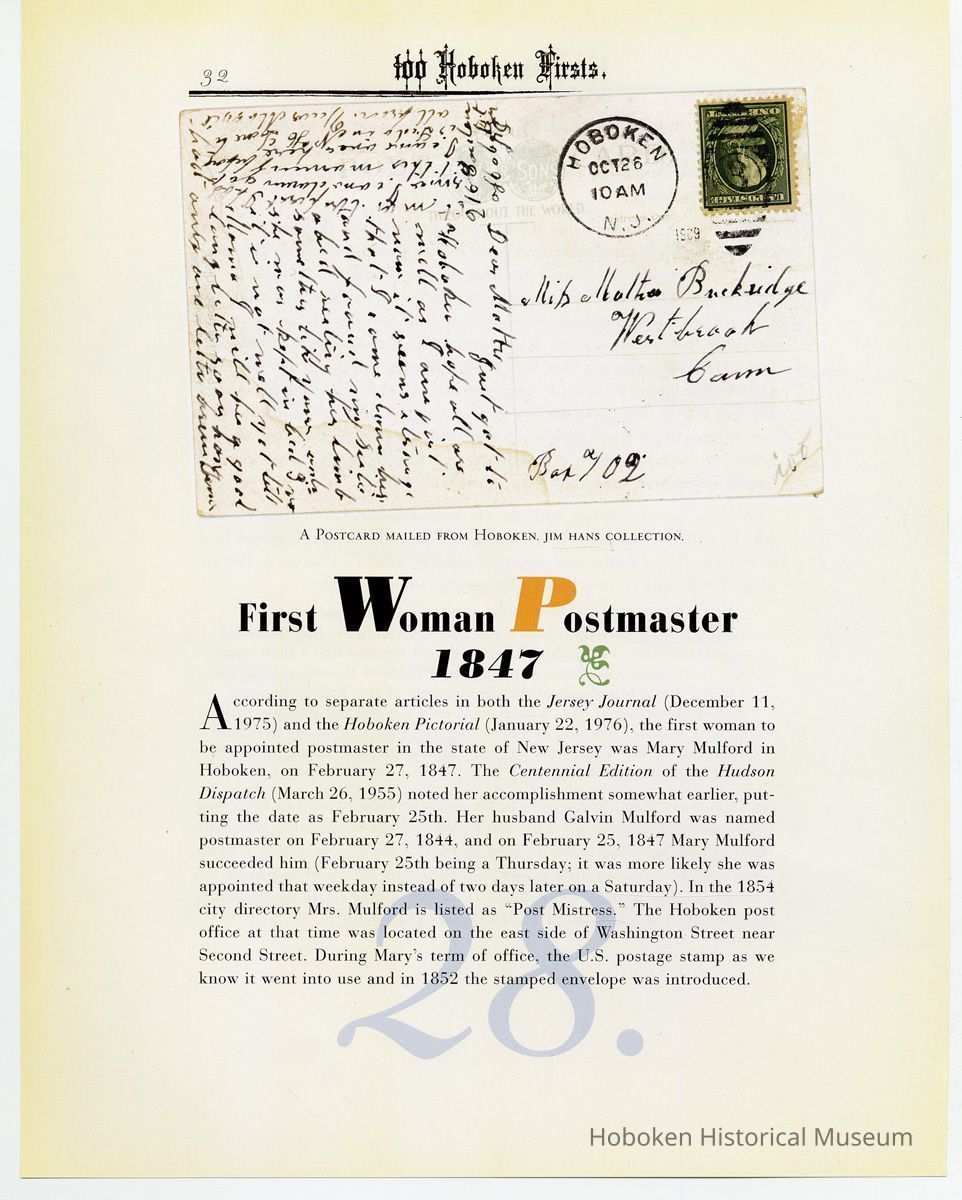 32
100 Hoboken Firsts.
HOBOKEN
OCT 26
10 AM
N.J.
1909
Dear Mother Just got to
Hoboken hope all are
well as I am just
now it seems
that I came down
and found my
abed
something like you
she was kept in bed
is not well yet
will be a good
long letter soon
Miss Buckridge
Westbrook
Conn
Box 102
A Postcard mailed from Hoboken. Jim Hans Collection.
First Woman Postmaster
1847
According to separate articles in both the Jersey Journal (December 11,
1975) and the Hoboken Pictorial (January 22, 1976), the first woman to
be appointed postmaster in the state of New Jersey was Mary Mulford in
Hoboken, on February 27, 1847. The Centennial Edition of the Hudson
Dispatch (March 26, 1955) noted her accomplishment somewhat earlier, put-
ting the date as February 25th. Her husband Galvin Mulford was named
postmaster on February 27, 1844, and on February 25, 1847 Mary Mulford
succeeded him (February 25th being a Thursday; it was more likely she was
appointed that weekday instead of two days later on a Saturday). In the 1854
city directory Mrs. Mulford is listed as “Post Mistress.” The Hoboken post
office at that time was located on the east side of Washington Street near
Second Street. During Mary’s term of office, the U.S. postage stamp as we
know it went into use and in 1852 the stamped envelope was introduced.
28.
Hoboken Historical Museum